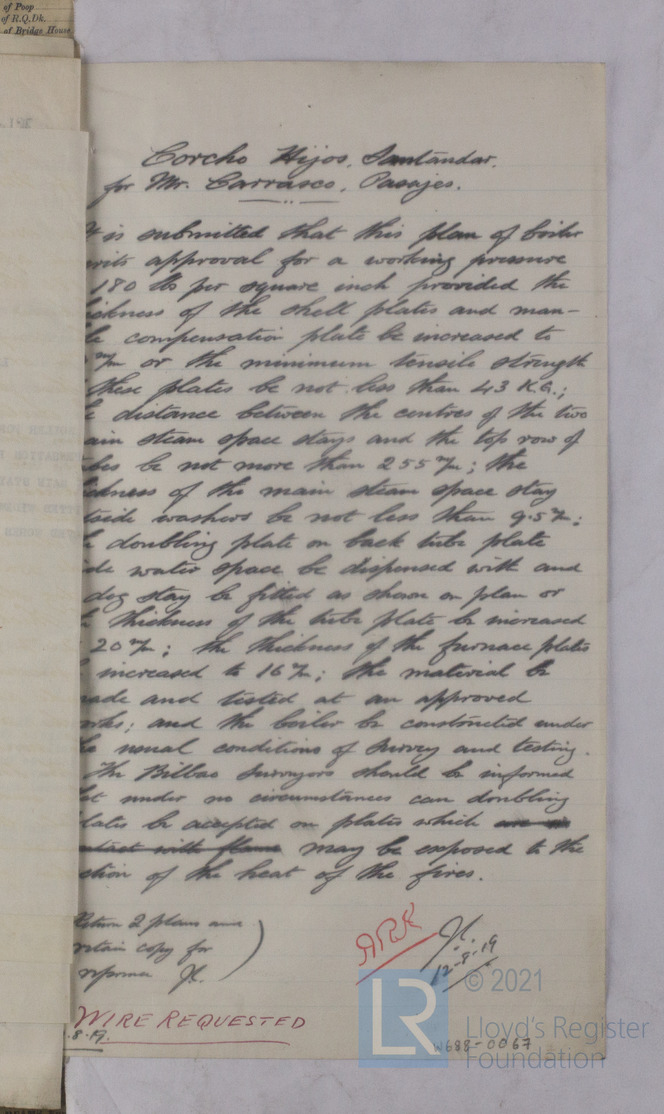 of Poop
of R.Q.Dk.
of Bridge House
Corcho Hijos, Santander.
for Mr. Carrasco, Pasajes.
is submitted that this plan of boiler
approval for a working pressure
180 lbs per square inch provided the
ickness of the shell plates and man-
le compensation plate be increased to
m/m or the minimum tensile strength
these plates be not less than 43 K.G.;
distance between the centres of the two
ain steam space stays and the top row of
bes be not more than 255 m/m; the
ickness of the main steam space stay
tside washers be not less than 9.5 m/m;
doubling plate on back tube plate
ide water space be dispensed with and
dog stay be fitted as shown on plan or
thickness of the tube plate be increased
20 m/m; the thickness of the furnace plates
increased to 16 m/m; the material be
ade and tested at an approved
orks; and the boiler be constructed under
he usual conditions of survey and testing.
The Bilbao Surveyors should be informed
at under no circumstances can doubling
lates be accepted on plates which
ntact with flame may be exposed to the
ction of the heat of the fires.
Return 2 plans and
retain copy for
JL.
ARK
JL.
12-8-19
WIRE REQUESTED
.8.19.
W688-0067
LR
© 2021
Lloyd's Register
Foundation